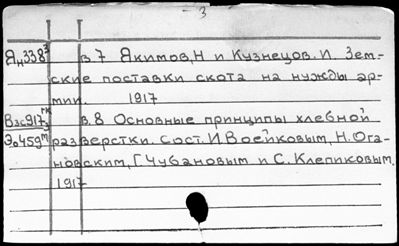 - 3
Яц338³ в.7 Якимов, Н и Кузнецов. И. Зем-
ские поставки скота на нужды ар-
мии. 1917
Взс917 в.8 Основные принципы хлебной
Эо459 разверстки. Сост. И Воейковым, Н. Ога-
новским, Г. Чубановым и С. Клепиковым.
1917